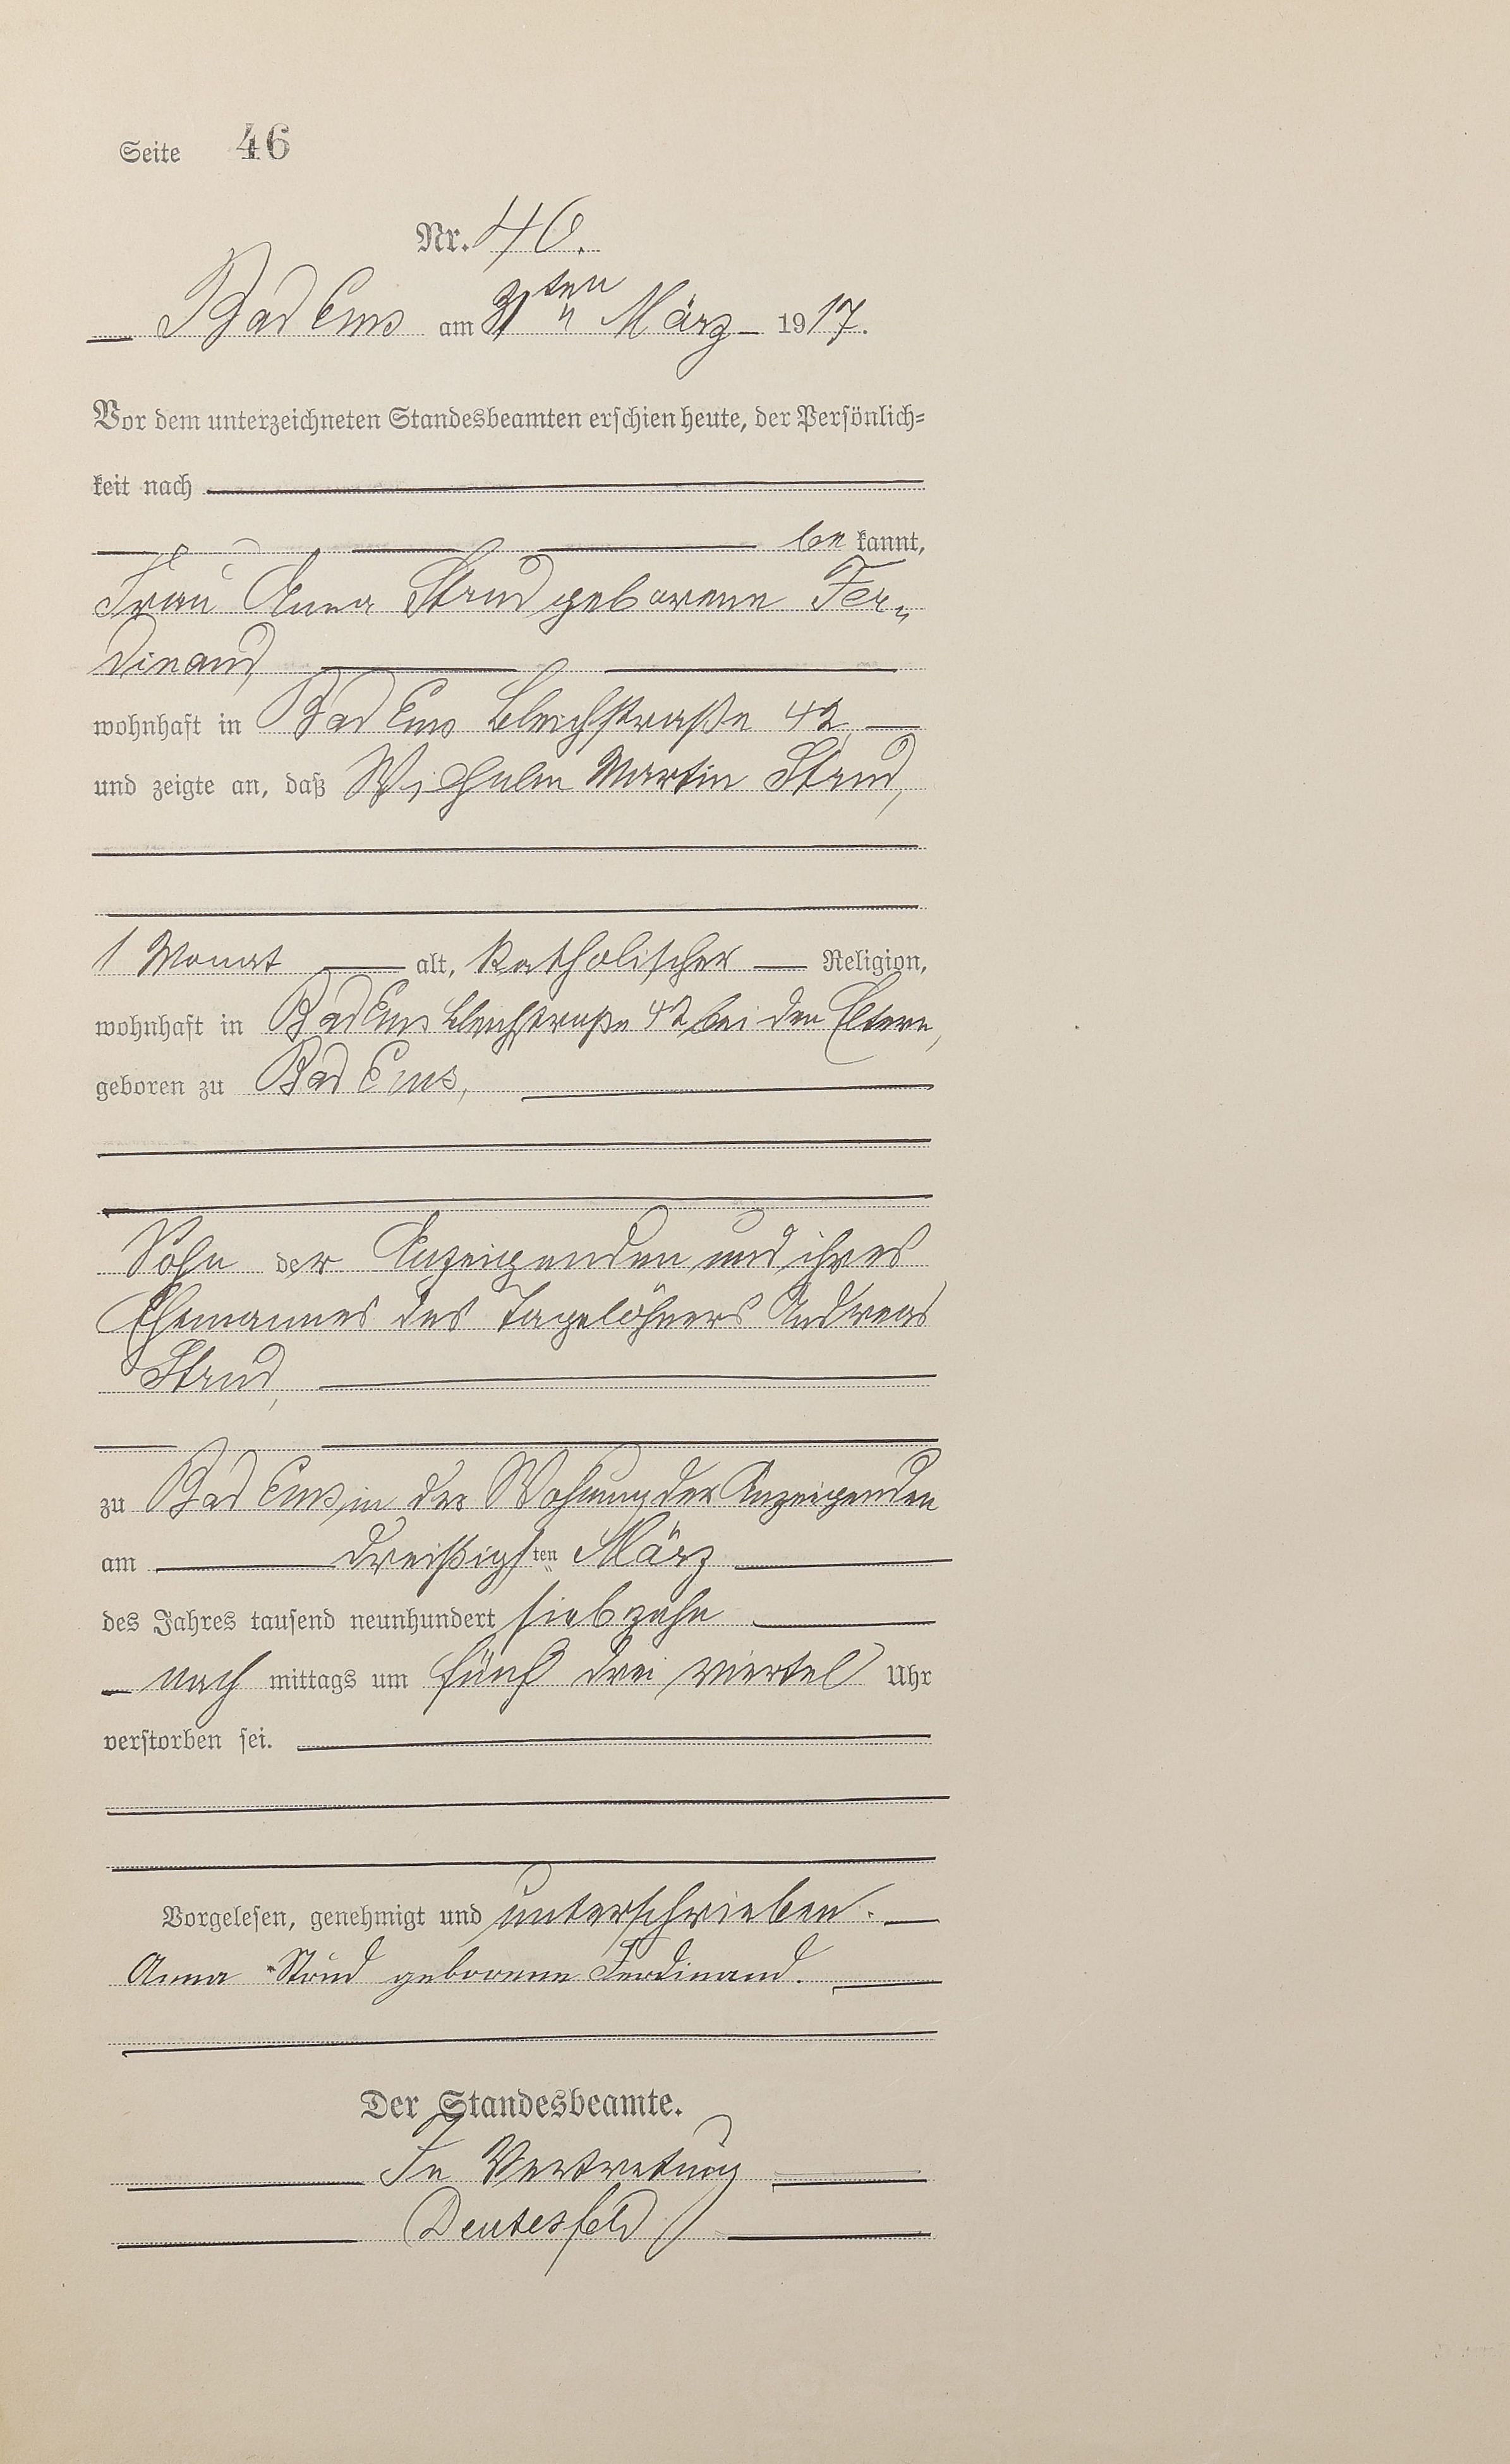 Seite 46
Nr. 46.
Bad Ems am 31ten März 1917.
Vor dem unterzeichneten Standesbeamten erschien heute, der Persönlich=
keit nach
be kannt,
Frau Anna Strud geborene Fer„
dinand,
wohnhaft in Bad Ems Bleichstraße 42,
und zeigte an, daß Wilhelm Martin Strud,
1 Monat alt, katholischer Religion,
wohnhaft in Bad Ems Bleichstraße 42 bei den Eltern,
geboren zu Bad Ems,
Sohn der Anzeigenden und ihres
Ehemannes des Tagelöhners Andreas
Strud,
zu Bad Ems, in der Wohnung der Anzeigenden
am dreißigsten März
des Jahres tausend neunhundert siebzehn
nach mittags um fünf drei viertel Uhr
verstorben sei.
Vorgelesen, genehmigt und unterschrieben.
Anna Strud geborenne Ferdinand.
Der Standesbeamte.
In Vertretung
Deutesfeld